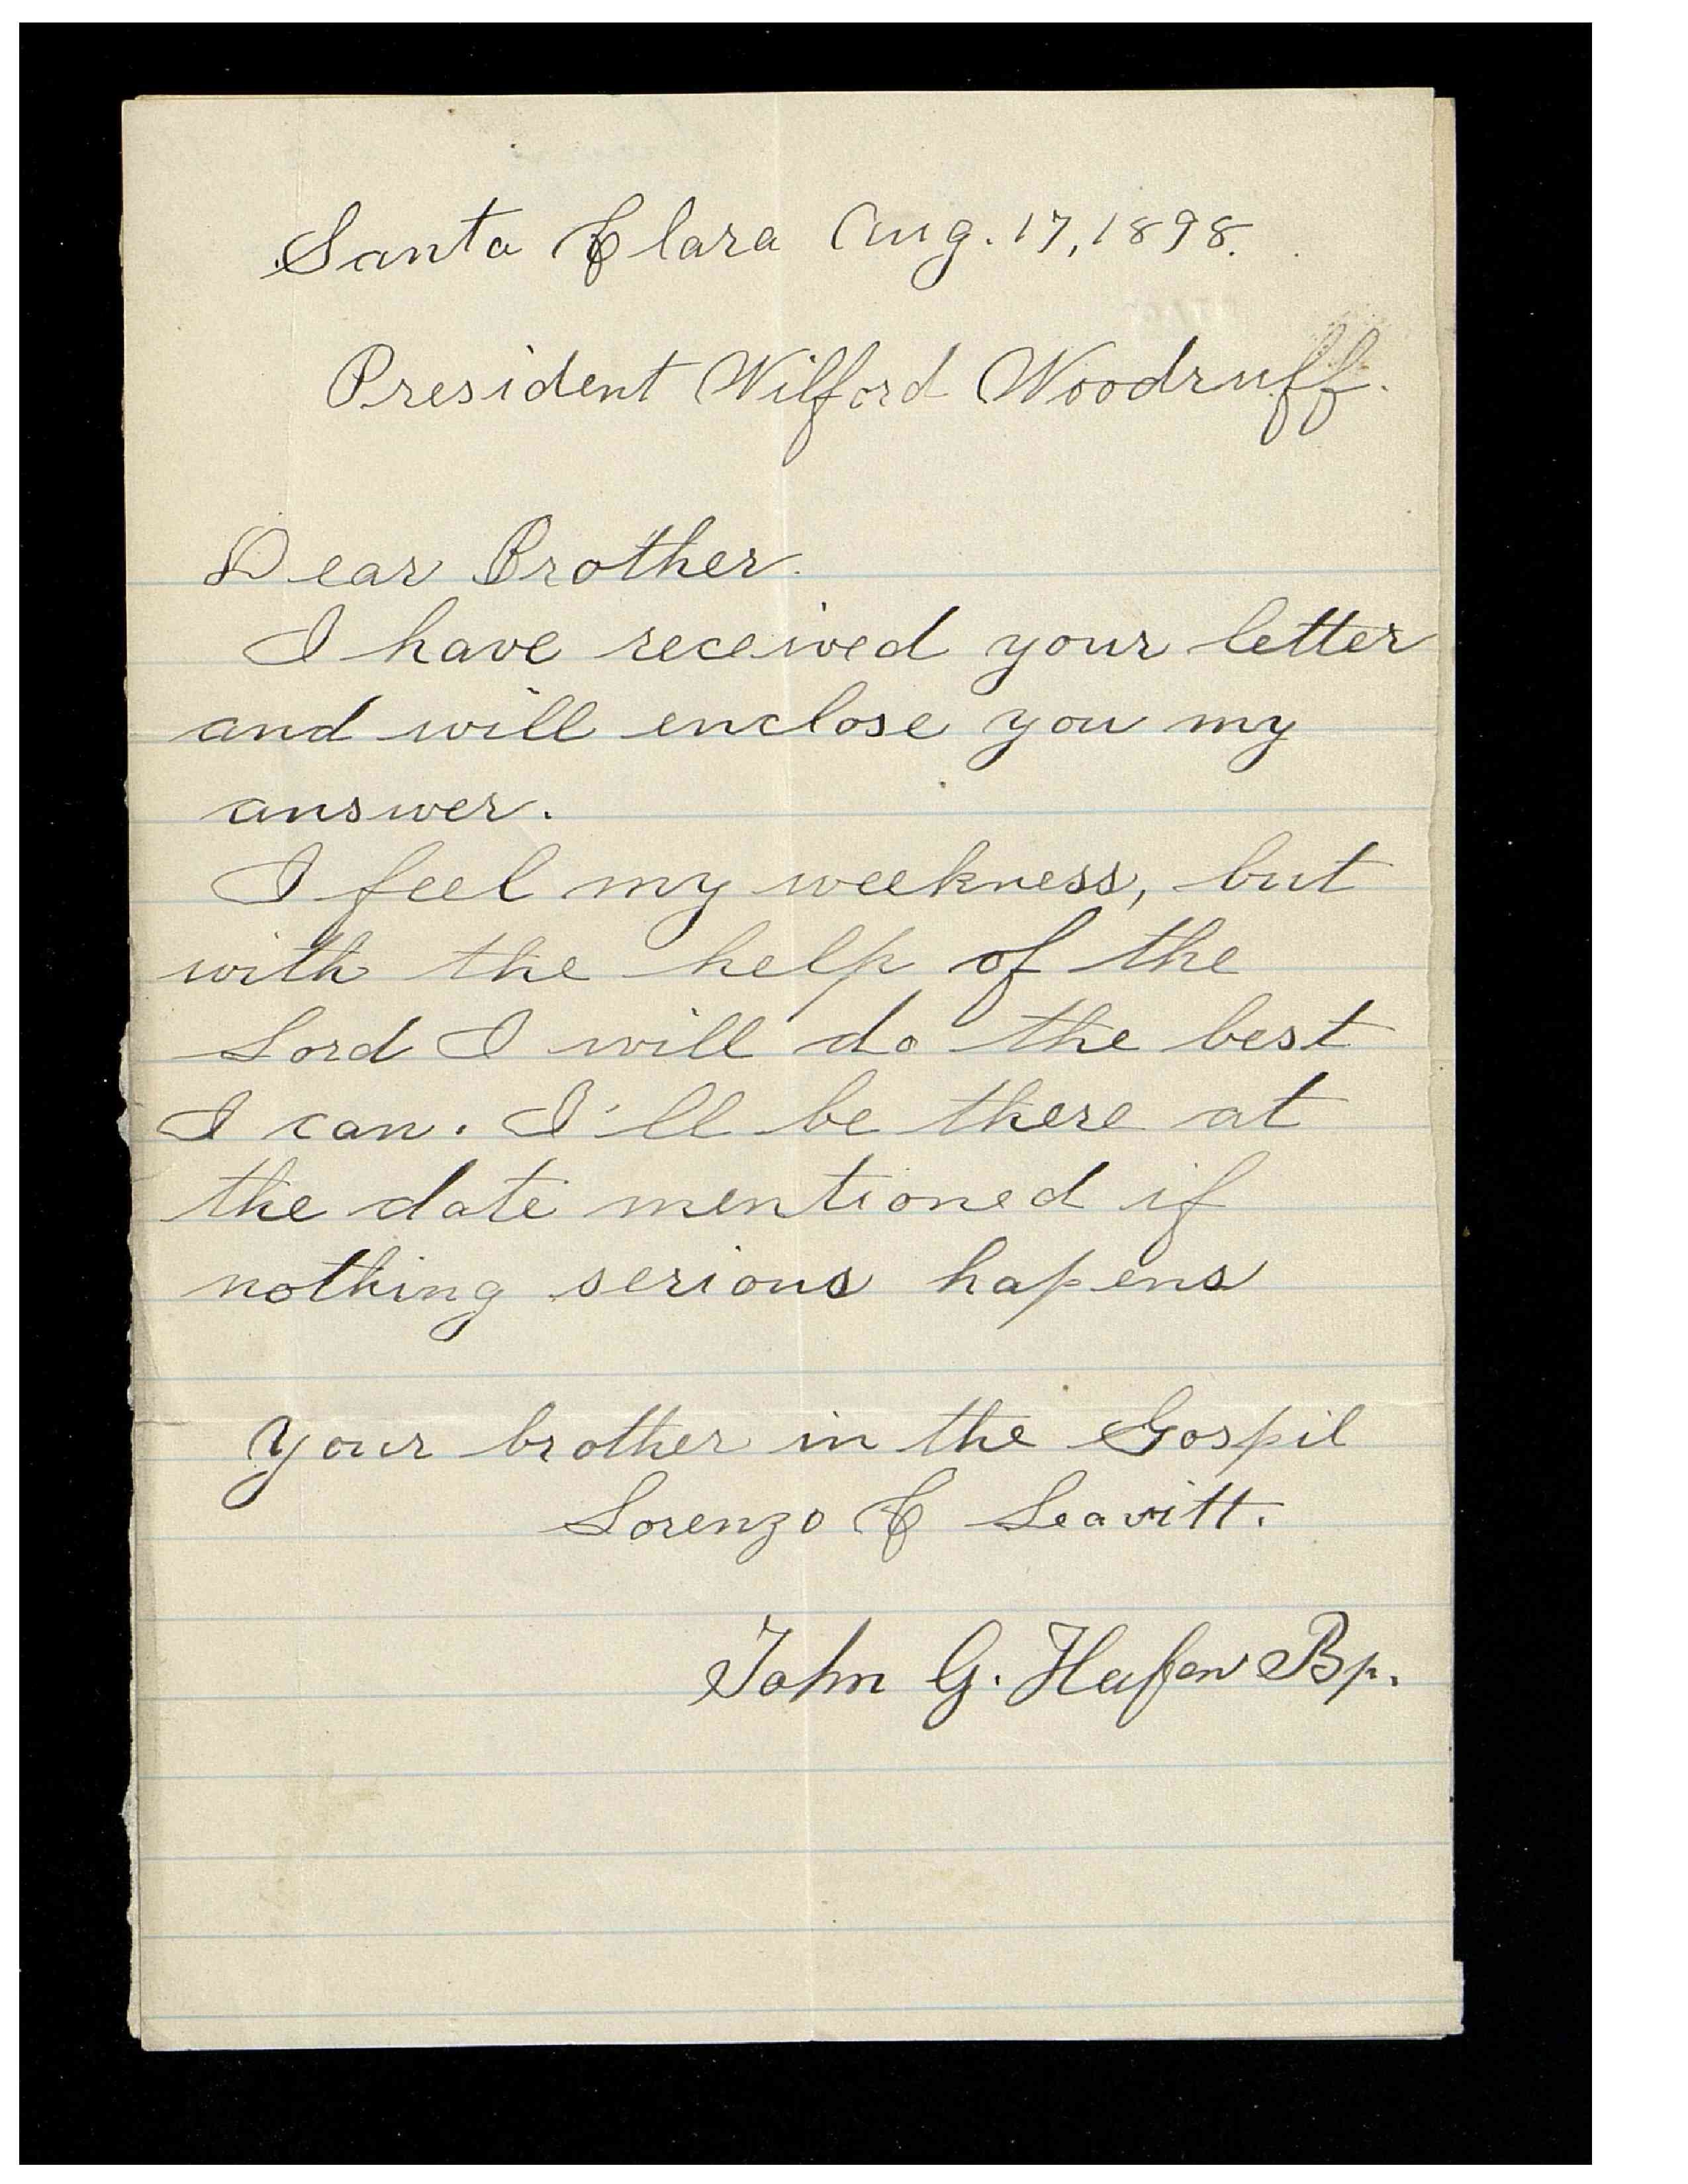 Santa Clara Aug. 17, 1898.
President Wilford Woodruff.
Dear Brother.
I have received your letter
and will enclose you my
answer.
I feel my weekness, but
with the help of the
Lord I will do the best
I can. I'll be there at
the date mentioned if
nothing serious hapens
Your brother in the Gospil
Lorenzo C Leavitt.
John G. Hafen Bp.